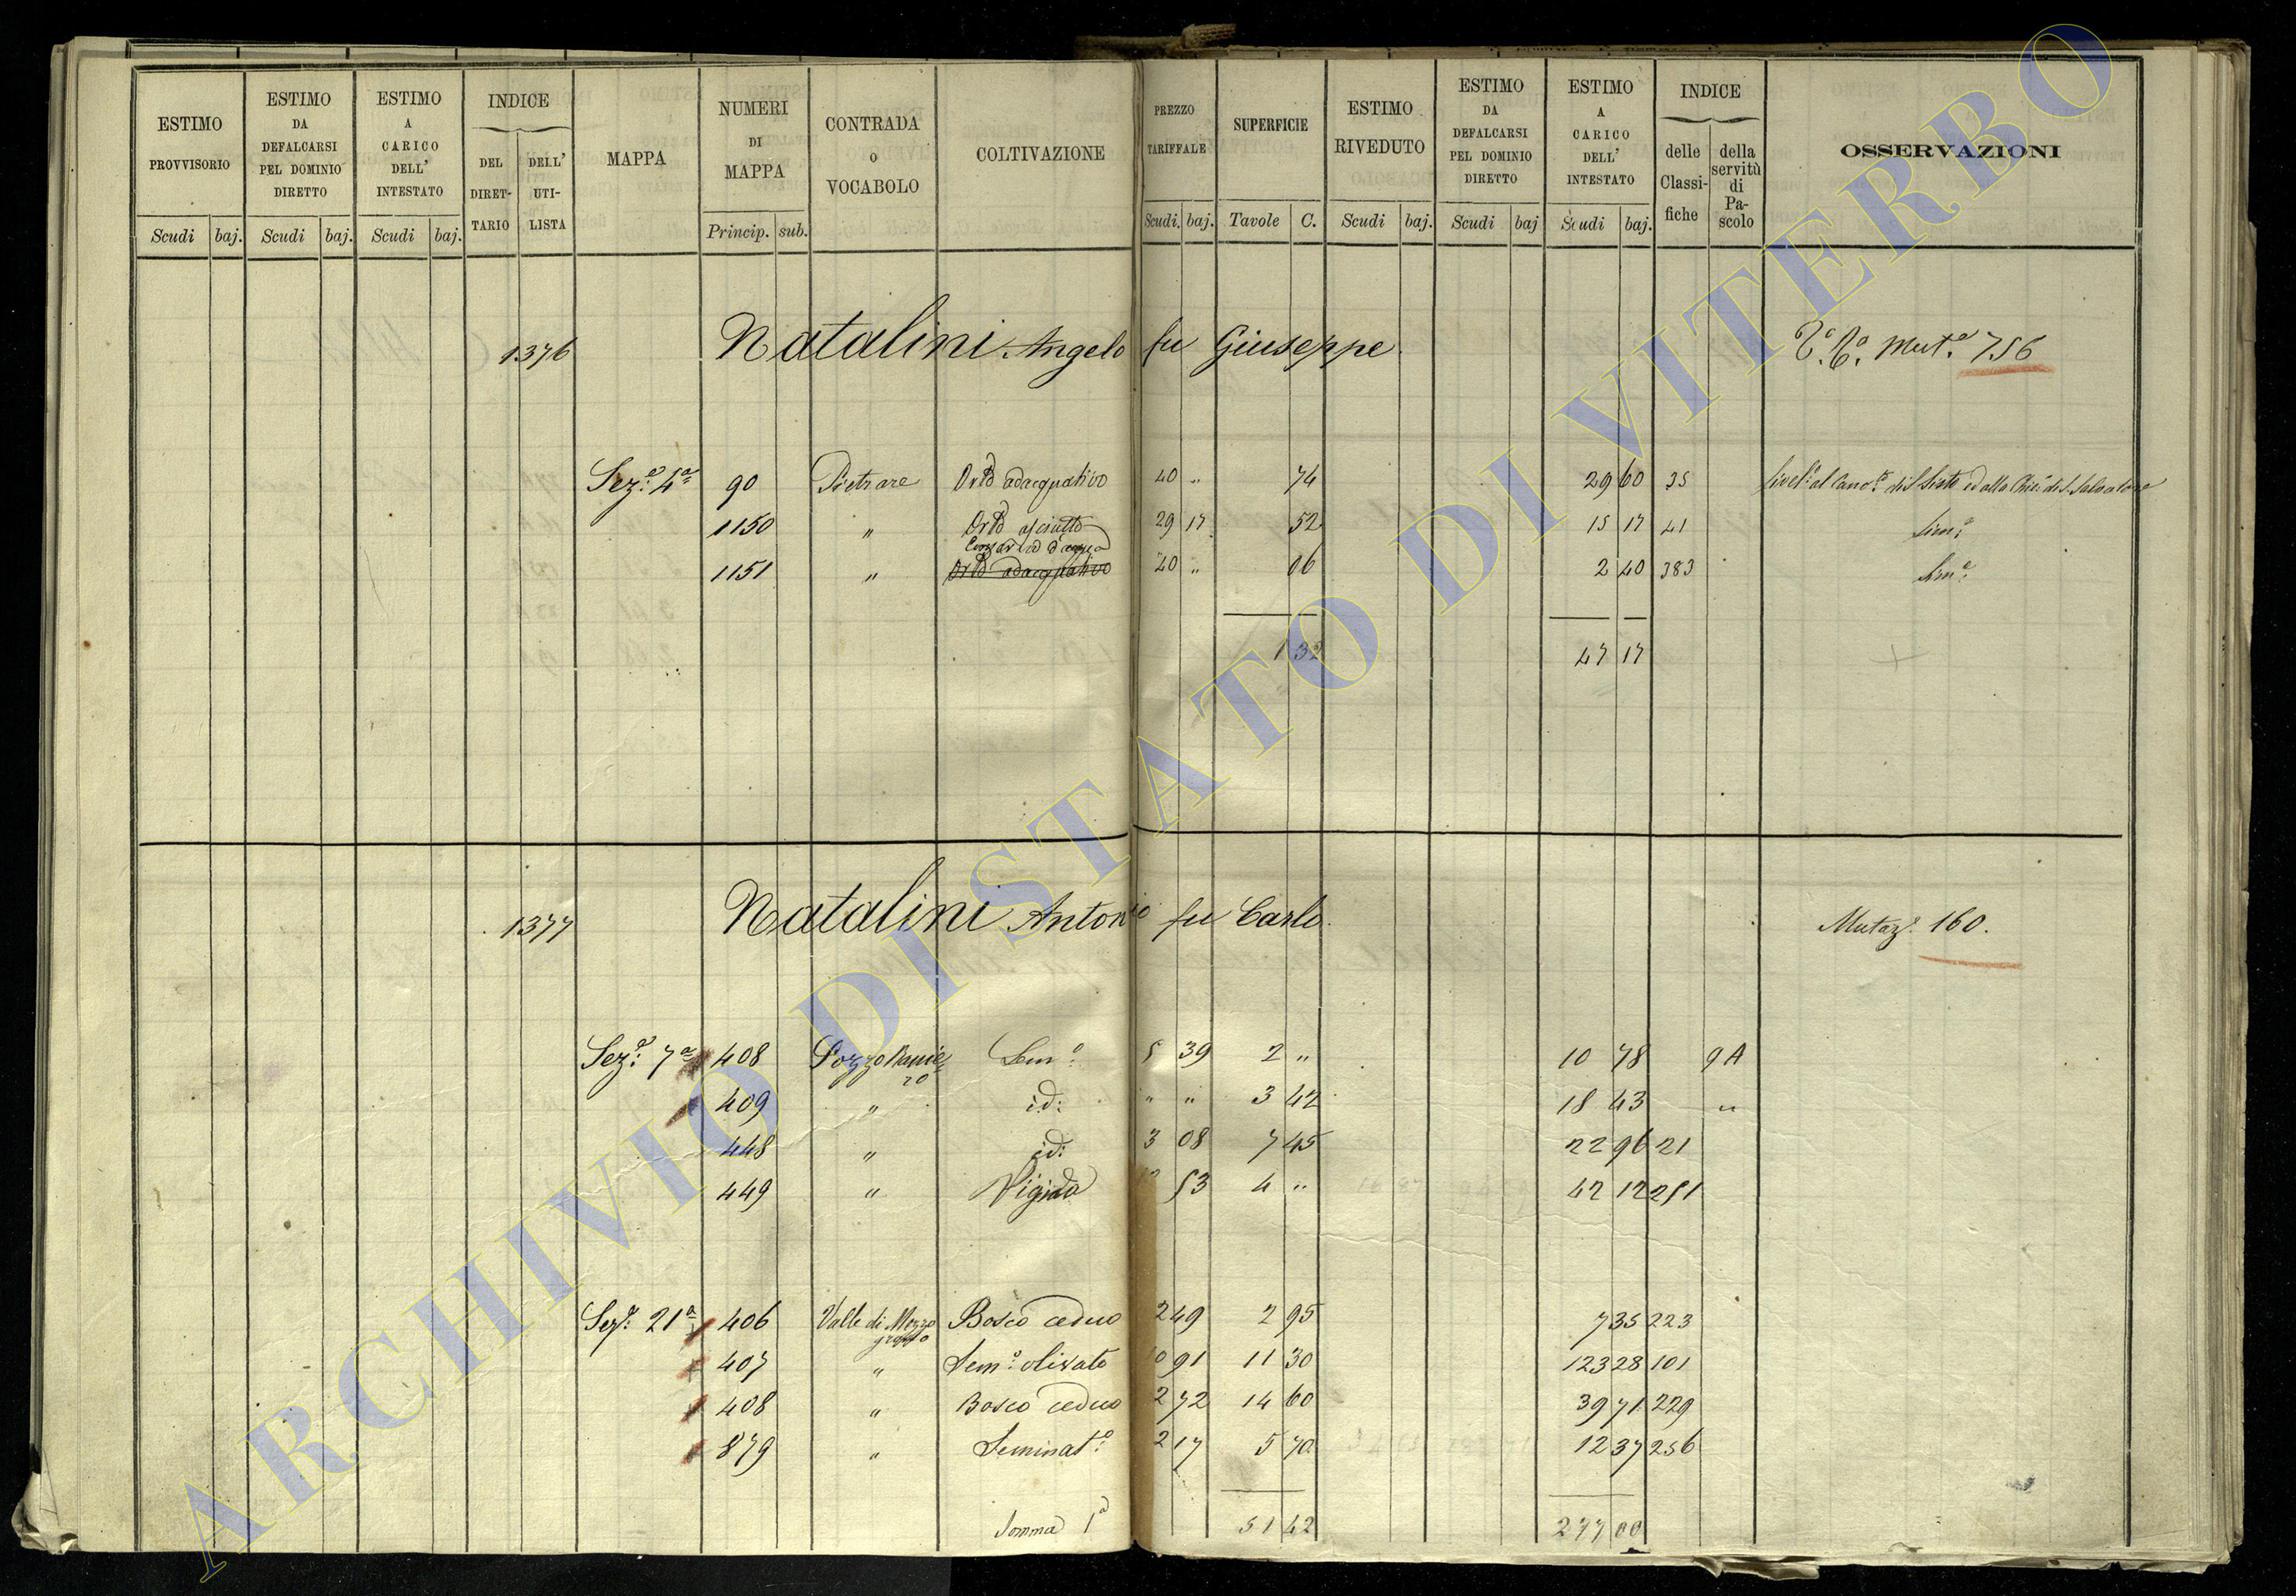 ESTIMO PROVVISORIO Scudi baj.
ESTIMO DA DEFALCARSI PEL DOMINIO DIRETTO Scudi baj.
ESTIMO A CARICO DELL' INTESTATO Scudi baj.
INDICE DEL DIRET-TARIO DELL' UTI-LISTA
MAPPA
NUMERI DI MAPPA Princip. sub.
CONTRADA O VOCABOLO
COLTIVAZIONE
PREZZO TARIFFALE Scudi. baj.
SUPERFICIE Tavole C.
ESTIMO RIVEDUTO Scudi baj.
ESTIMO DA DEFALCARSI PEL DOMINIO DIRETTO Scudi baj
ESTIMO A CARICO DELL' INTESTATO Scudi baj.
INDICE delle Classi-fiche della servitù di Pa-scolo
OSSERVAZIONI
1376 Natalini Angelo fu Giuseppe Mut.e 756
Sez.e 4a 90 Pietrare Orto adacquativo 40 " 74 29 60 35
1150 " Orto asciutto 29 17 52 15 17 41 Sim.e
Conserva d'acqua
1151 " Orto adacquativo 40 " 06 2 40 383 Sim.e
1 32 47 17
1377 Natalini Antonio fu Carlo. Mutaz.e 160.
Sez.e 7a 408 Pozzo Ranie= Sem.o 5 39 2 " 10 78 9A
ro
409 " id: " " 3 42 18 43 "
448 " id: 3 08 7 45 22 96 21
449 " Vignato 53 4 " 42 12 251
Sez.e 21a 406 Valle di Mezzo Bosco ceduo 2 49 2 95 7 35 223
grosso
407 " Sem.o olivato 10 91 11 30 123 28 101
408 " Bosco ceduo 2 72 14 60 39 71 229
879 " Seminat.o 2 17 5 70 12 37 256
Somma 1a 51 42 277 00
ARCHIVIO DI STATO DI VITERBO